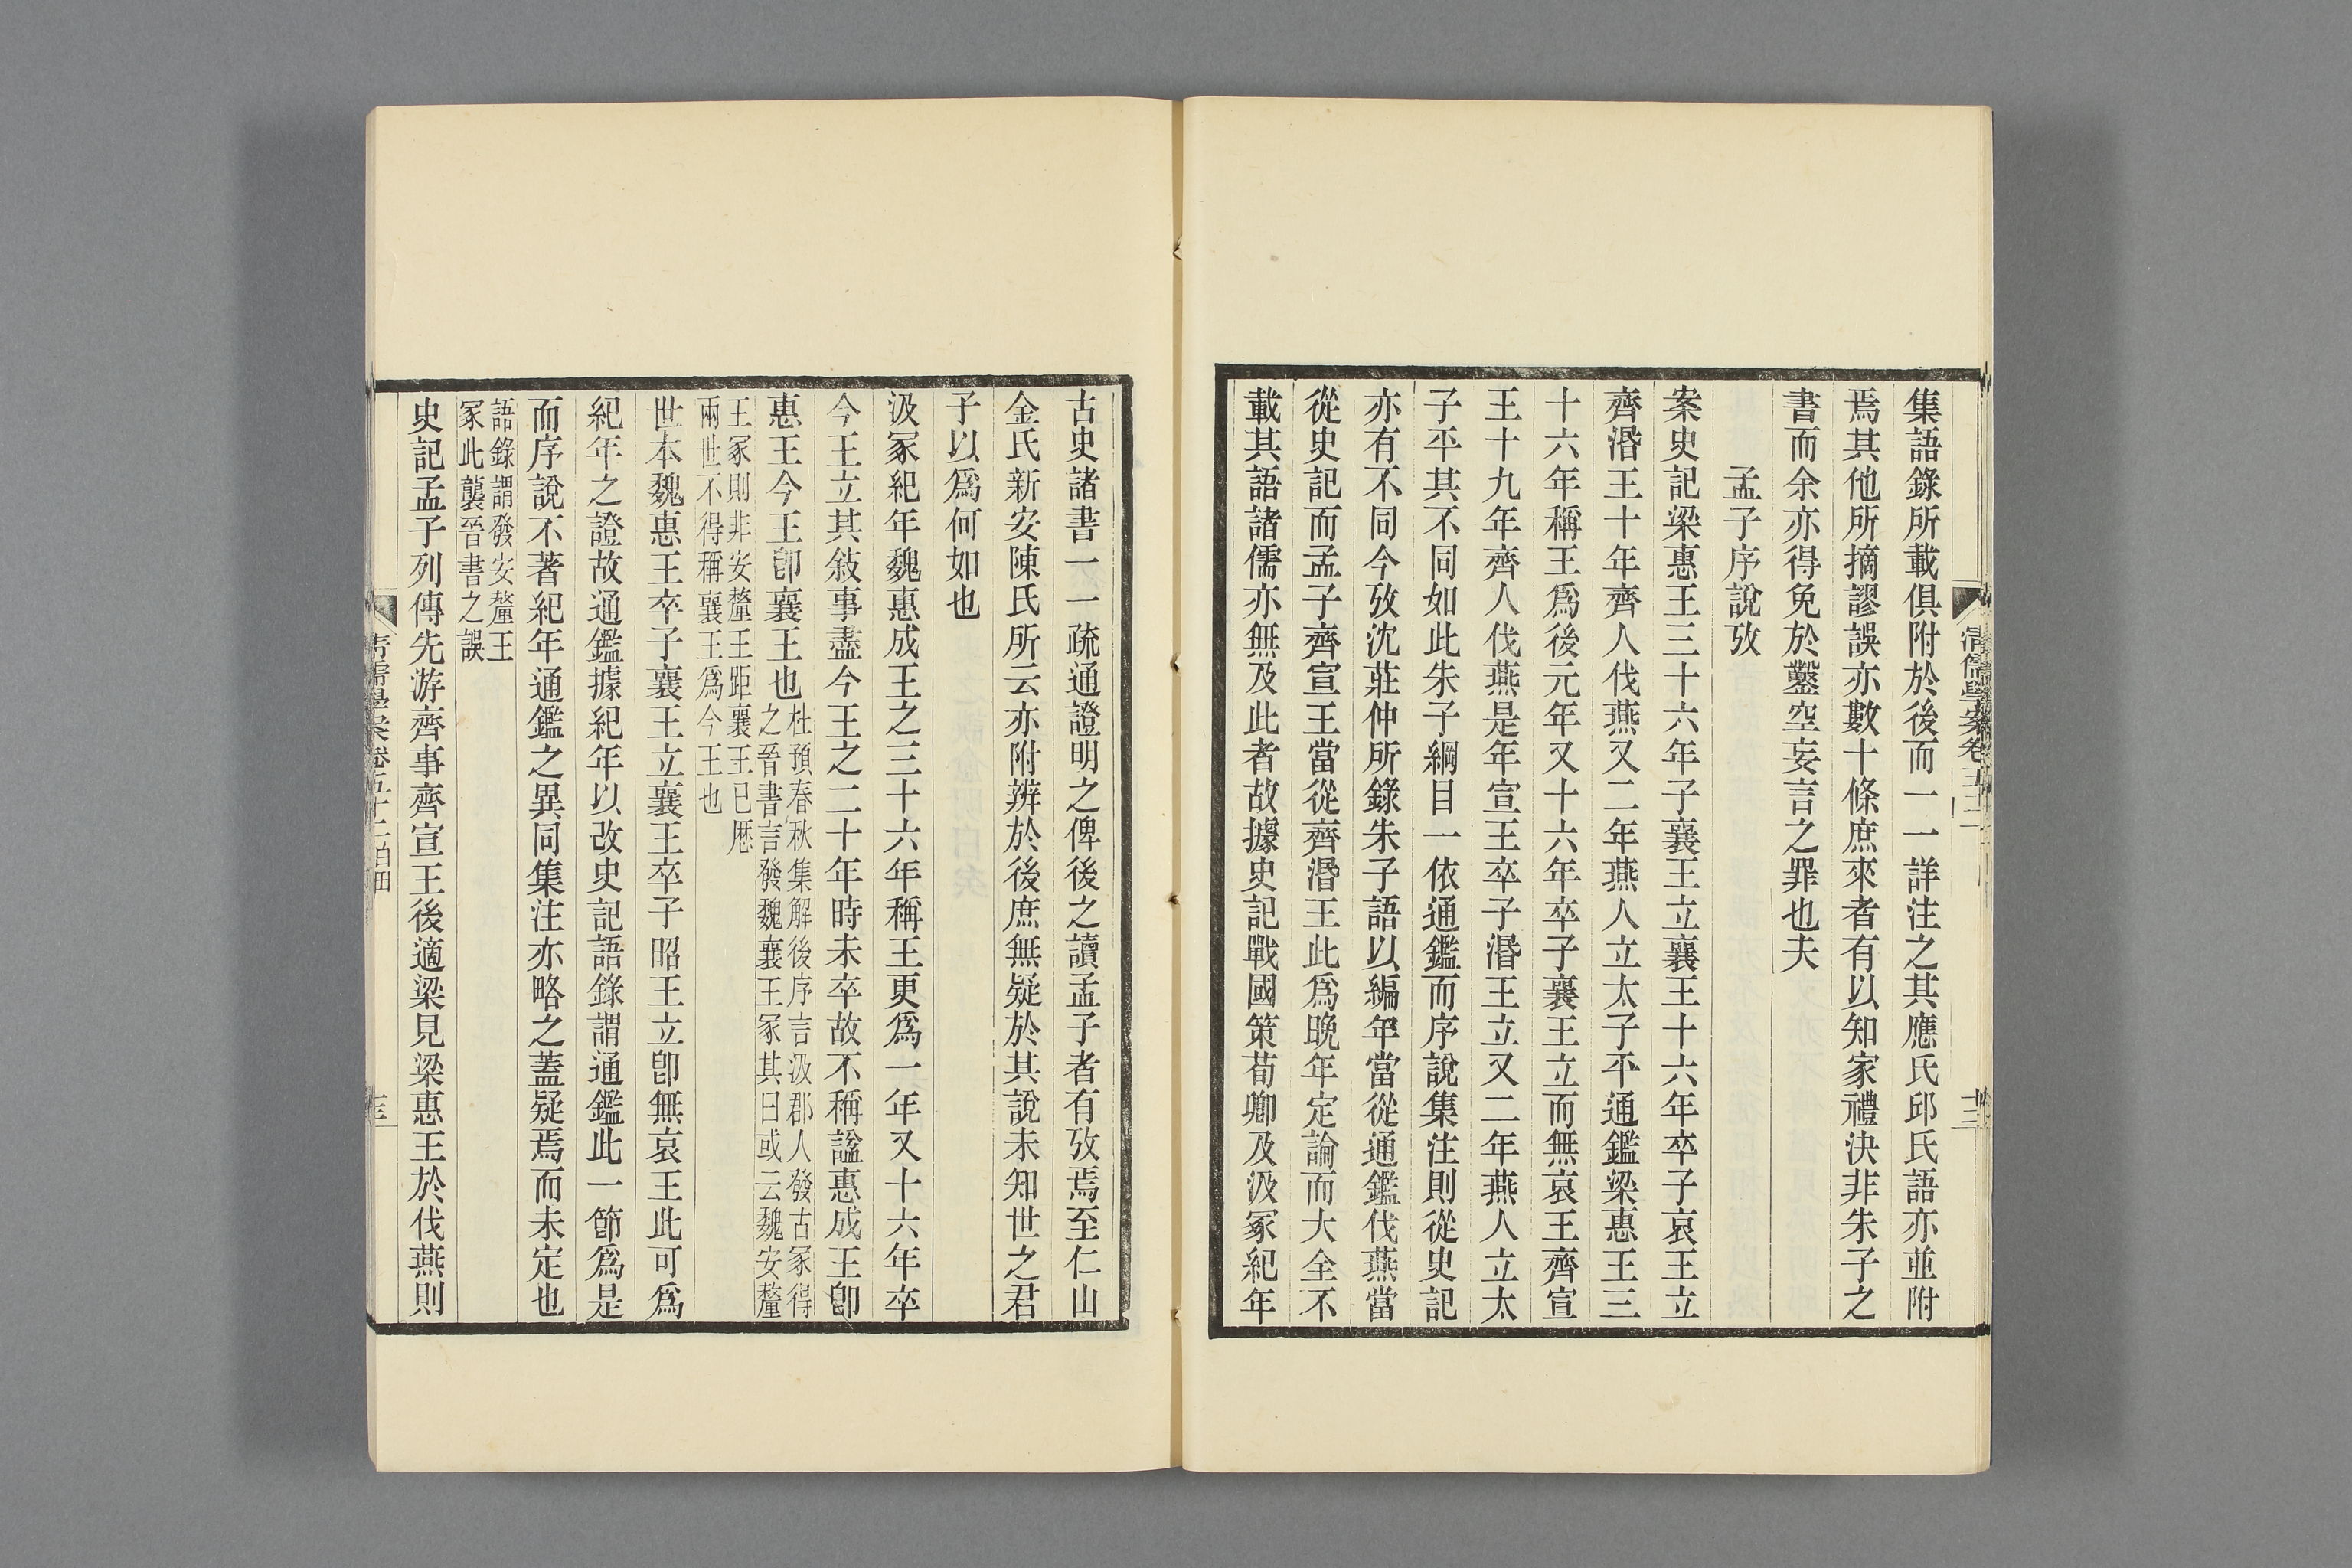 集語錄所載俱附於後而一一詳注之其應氏邱氏語亦並附
焉其他所摘謬誤亦數十條庶來者有以知家禮決非朱子之
書而余亦得免於鑿空妄言之罪也夫
孟子序說攷
案史記梁惠王三十六年子襄王立襄王十六年卒子哀王立
齊湣王十年齊人伐燕又二年燕人立太子平通鑑梁惠王三
十六年稱王爲後元年又十六年卒子襄王立而無哀王齊宣
王十九年齊人伐燕是年宣王卒子湣王立又二年燕人立太
子平其不同如此朱子綱目一依通鑑而序說集注則從史記
亦有不同今攷沈莊仲所錄朱子語以編年當從通鑑伐燕當
從史記而孟子齊宣王當從齊湣王此爲晚年定論而大全不
載其語諸儒亦無及此者故據史記戰國策荀卿及汲冢紀年
古史諸書一一疏通證明之俾後之讀孟子者有攷焉至仁山
金氏新安陳氏所云亦附辨於後庶無疑於其說未知世之君
子以爲何如也
汲冢紀年魏惠成王之三十六年稱王更爲一年又十六年卒
今王立其敍事盡今王之二十年時未卒故不稱謚惠成王卽
惠王今王卽襄王也
杜預春秋集解後序言汲郡人發古冢得
之晉書言發魏襄王冢其曰或云魏安釐
王冢則非安釐王距襄王已歷
兩世不得稱襄王爲今王也
世本魏惠王卒子襄王立襄王卒子昭王立卽無哀王此可爲
紀年之證故通鑑據紀年以改史記語錄謂通鑑此一節爲是
而序說不著紀年通鑑之異同集注亦略之蓋疑焉而未定也
語錄謂發安釐王
冢此襲晉書之誤
史記孟子列傳先游齊事齊宣王後適梁見梁惠王於伐燕則